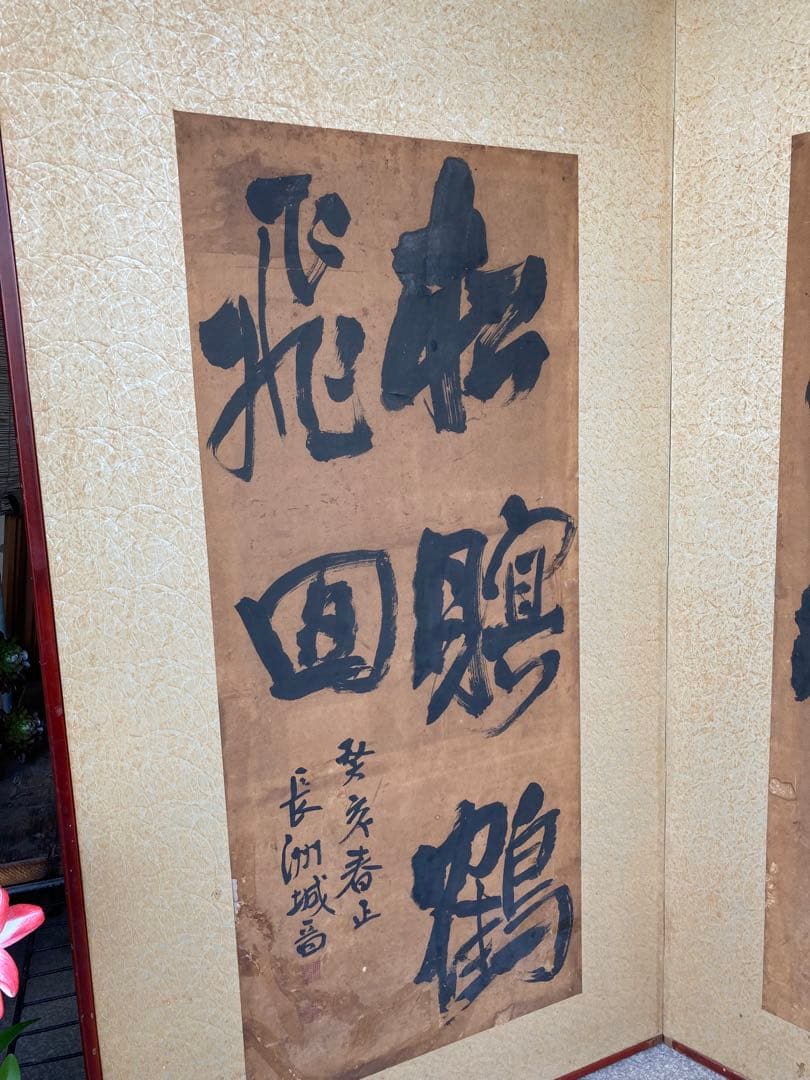 松暝鶴
飛回
癸亥春正
長洲城晋